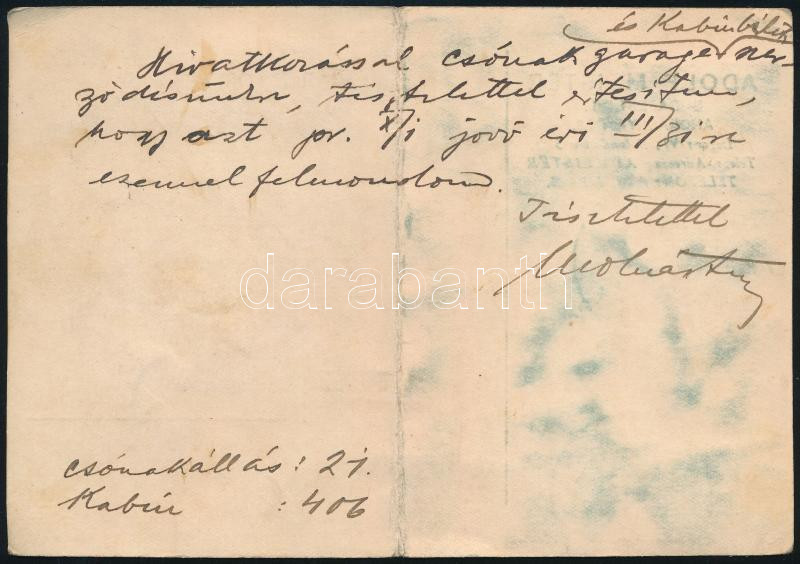 és Kabinbérleti
Hivatkozással csónakgarage szer-
ződésünkre, tisztelettel értesítem,
hogy azt pr. I/X i jövő évi III/31 re
ezennel felmondom.
Tisztelettel
csónakállás: 21.
Kabin : 406
darabanth